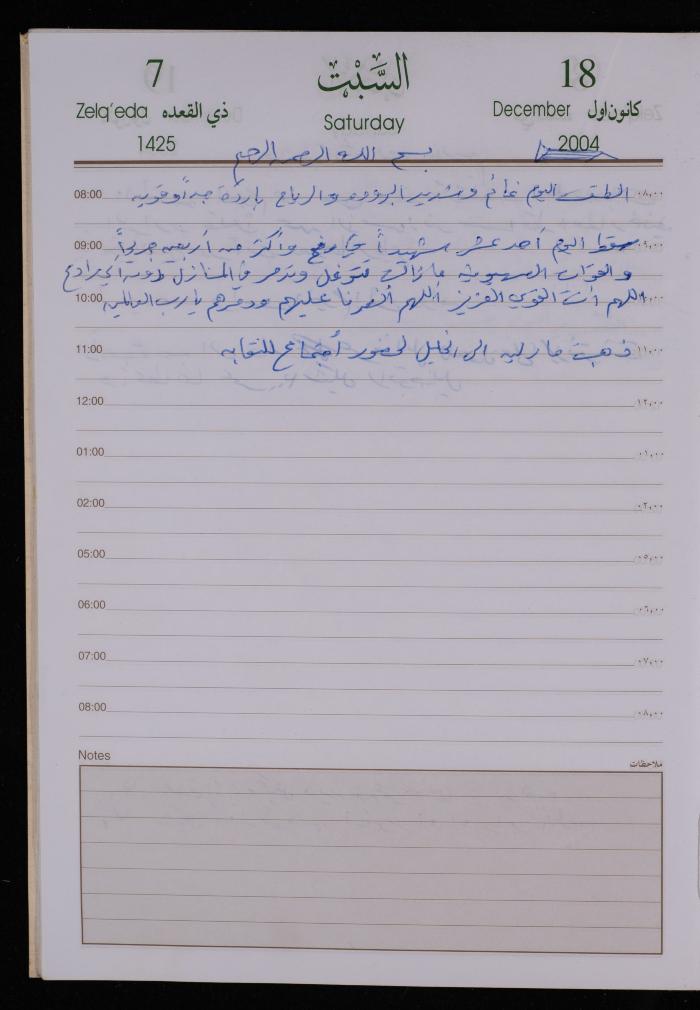 7 السَّبْت 18
Zelq'eda ذي القعده Saturday December كانون اول
1425 2004
بسم الله الرحمن الرحيم
08:00 الطقس اليوم غائم وشديد البرودة والرياح باردة جداً وقوية ٠٨،٠٠
09:00 سقط اليوم أحد عشر شهيداً في رفح وأكثر من أربعين جريحاً ٠٩،٠٠
والقوات الصهيونية ما زالت تتوغل وتدمر في المنازل دون أي رادع
10:00 اللهم أنت القوي العزيز اللهم انصرنا عليهم ودمرهم يا رب العالمين ١٠،٠٠
11:00 ذهبت مارلين الى الخليل لحضور أجتماع للنقابة ١١،٠٠
12:00 ١٢،٠٠
01:00 ٠١،٠٠
02:00 ٠٢،٠٠
05:00 ٠٥،٠٠
06:00 ٠٦،٠٠
07:00 ٠٧،٠٠
08:00 ٠٨،٠٠
Notes ملاحظات